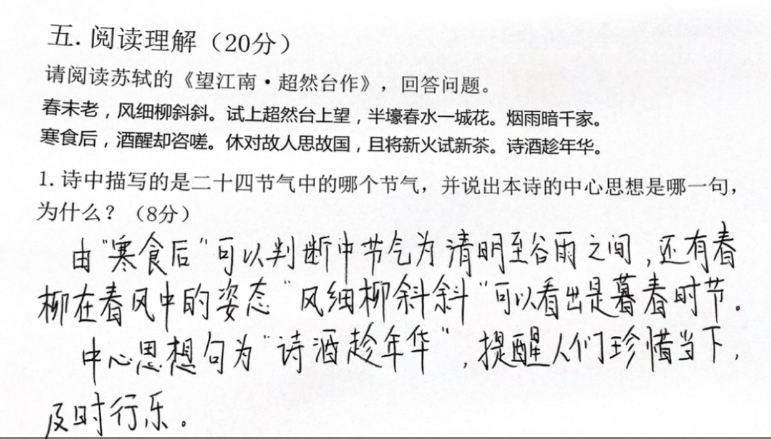 五.阅读理解（20分）
请阅读苏轼的《望江南·超然台作》，回答问题。
春未老，风细柳斜斜。试上超然台上望，半壕春水一城花。烟雨暗千家。
寒食后，酒醒却咨嗟。休对故人思故国，且将新火试新茶。诗酒趁年华。
1.诗中描写的是二十四节气中的哪个节气，并说出本诗的中心思想是哪一句，
为什么？（8分）
由"寒食后"可以判断中节气为清明至谷雨之间，还有春
柳在春风中的姿态"风细柳斜斜"可以看出是暮春时节。
中心思想句为"诗酒趁年华"，提醒人们珍惜当下，
及时行乐。